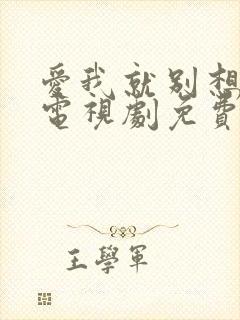 愛我就別想
電視劇免費
王學軍